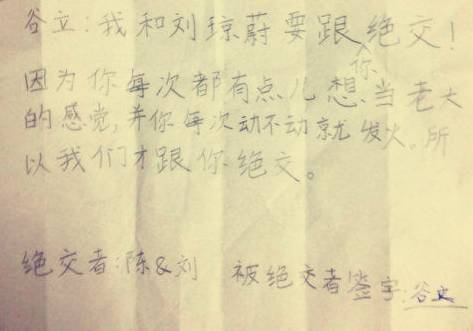 谷立:我和刘琼蔚要跟绝交!
因为你每次都有点儿想你当老大
的感觉,并你每次动不动就发火。所
以我们才跟你绝交。
绝交者:陈&刘 被绝交者签字:谷立